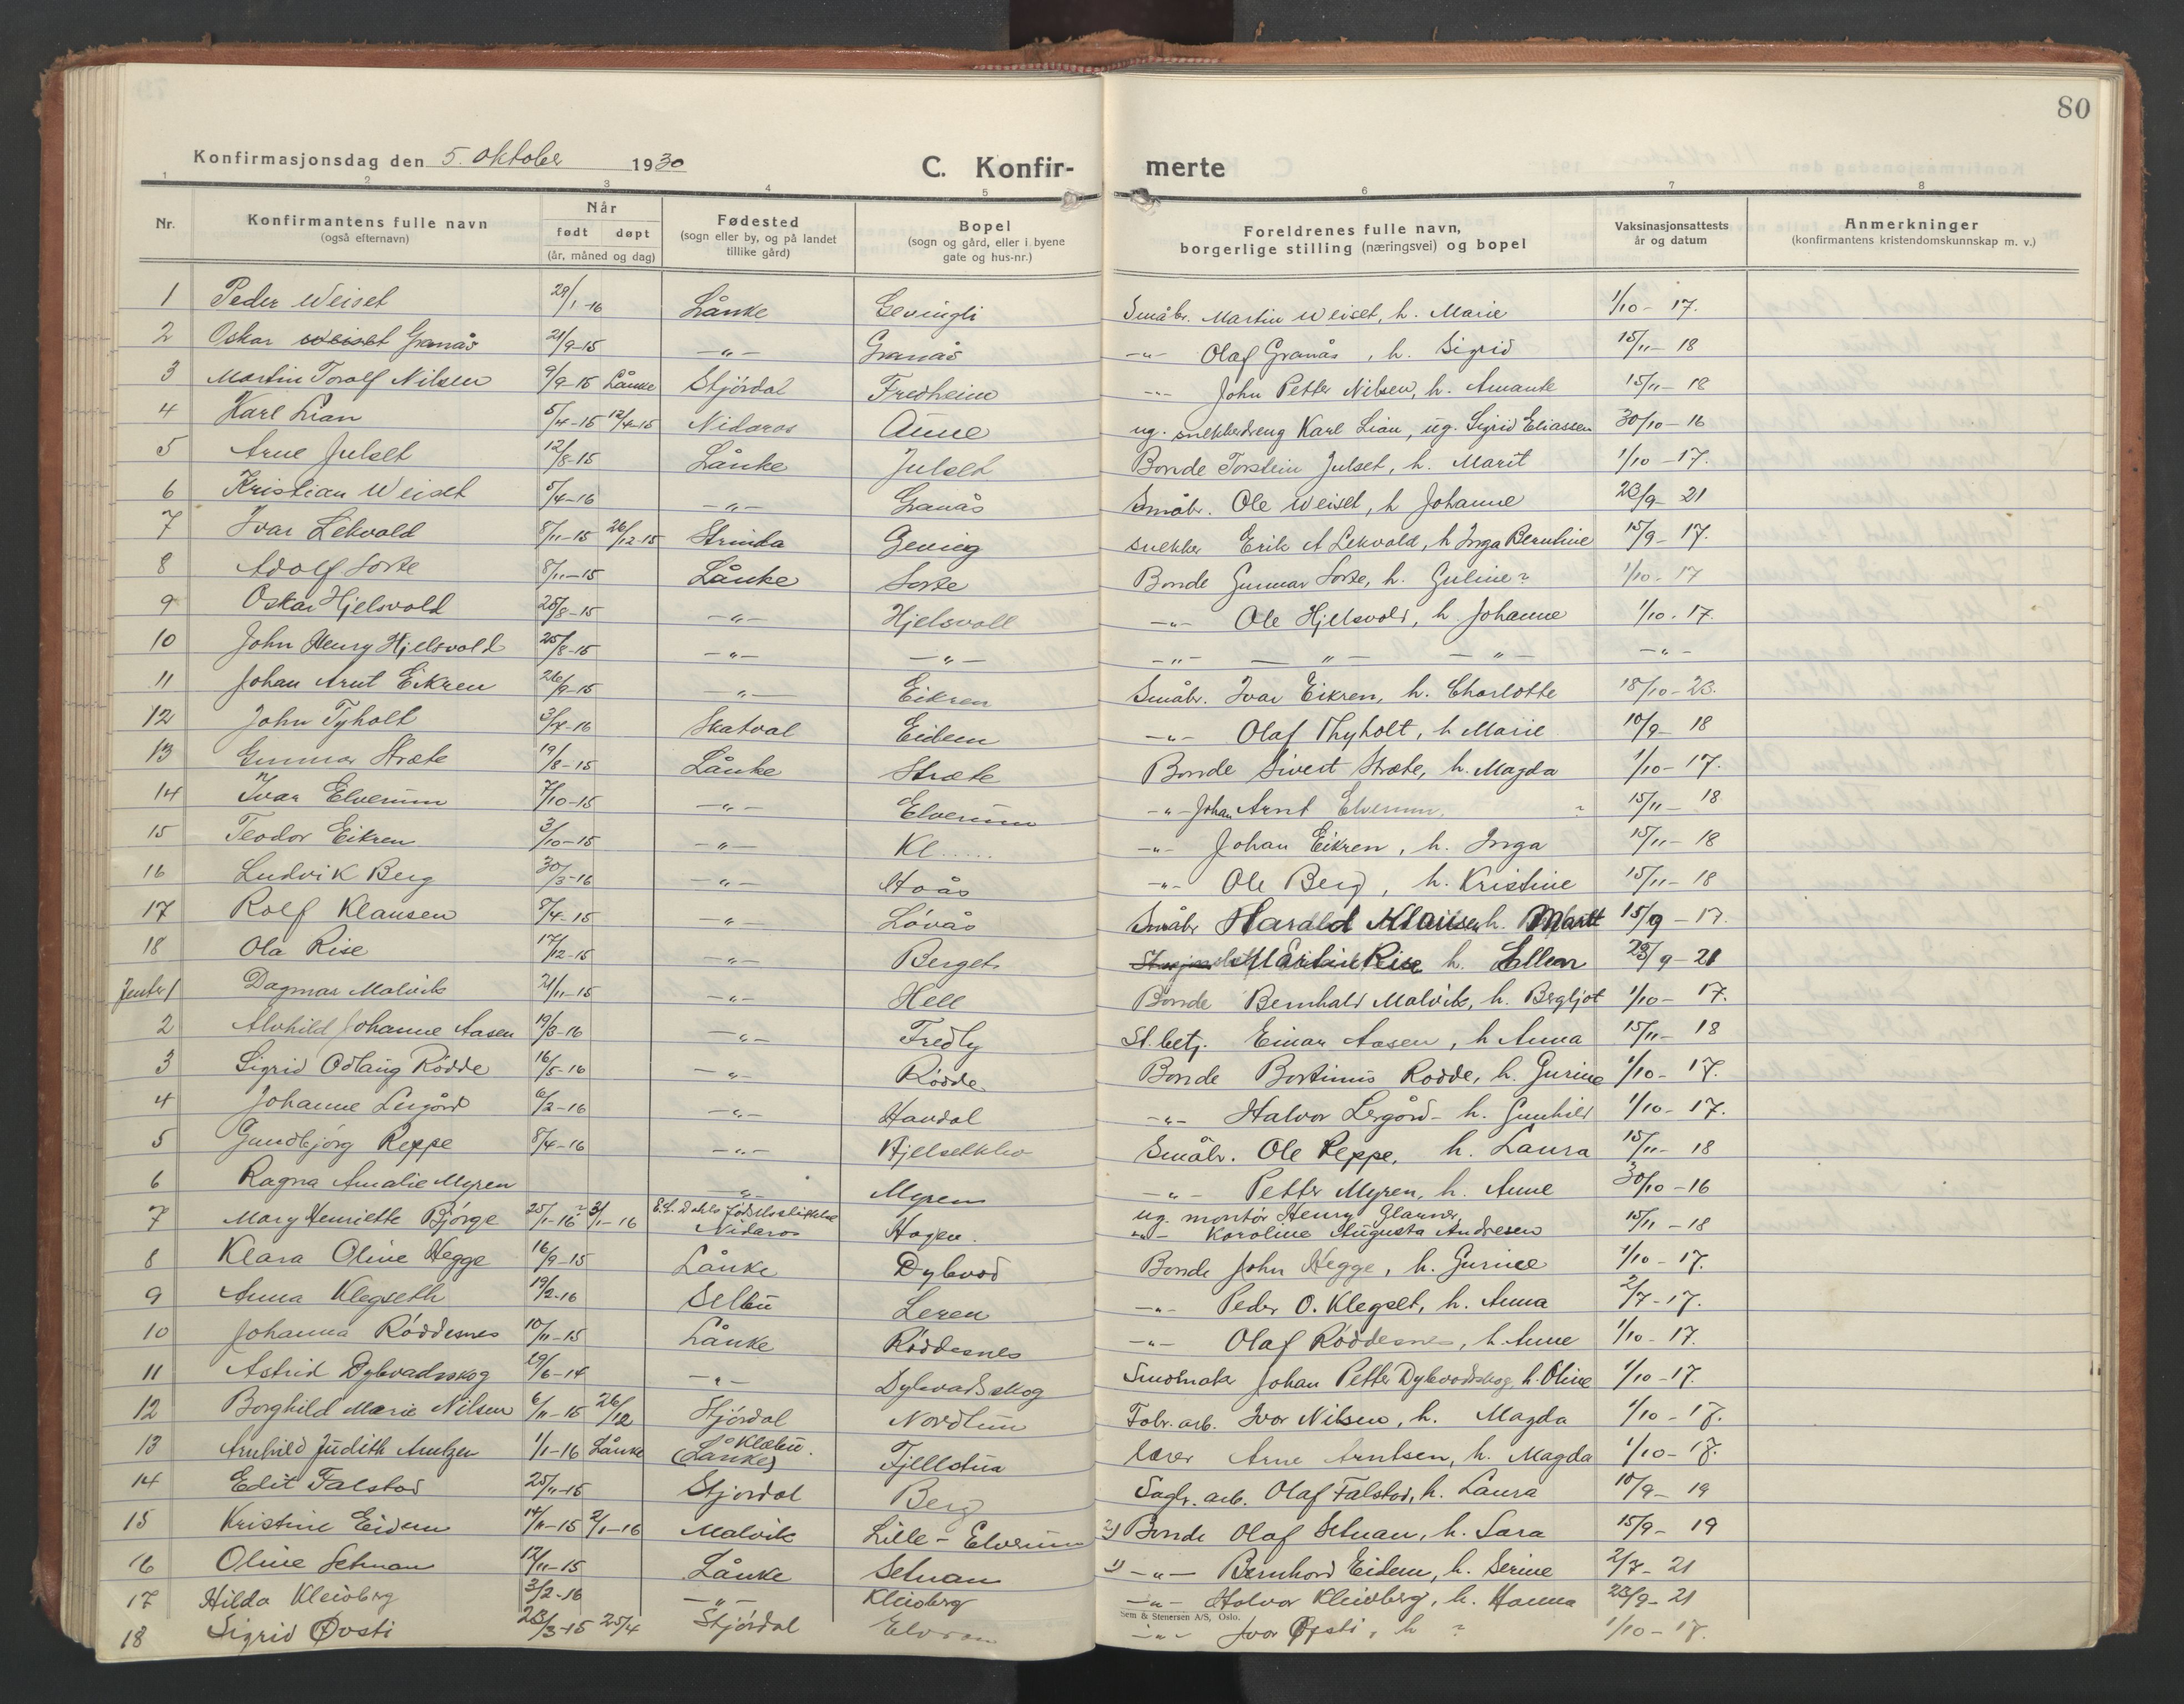 80
Konfirmasjonsdag den 5. oktober 1930 C. Konfir- merte
1 2 3 4 5 6 7 8
Nr. Konfirmantens fulle navn (også efternavn) Når født døpt (år, måned og dag) Fødested (sogn eller by, og på landet tillike gård) Bopel (sogn og gård, eller i byene gate og hus-nr.) Foreldrenes fulle navn, borgerlige stilling (næringsvei) og bopel Vaksinasjonsattests år og datum Anmerkninger (konfirmantens kristendomskunnskap m. v.)
1 Peder Weiset 29/1-16 Lånke Gevingli Småbr. Martin Weiset, h. Marie 1/10-17.
2 Oskar Weiset Granås 21/9-15 -"- Granås -"- Olaf Granås, h. Sigrid 15/11-18
3 Martin Toralf Nilsen 9/9-15 Lånke Stjórdal Fredheim -"- John Petter Nilsen, h. Amante 15/11-18
4 Karl Lian 5/4-15 12/4-15 Nidaros Aune ug. snekkerdreng Karl Lian, ug. Sigrid Eliassen 30/10-16
5 Arne Julset 12/8-15 Lånke Julset Bonde Torstein Julset, h. Marit 1/10-17.
6 Kristian Weiset 5/4-16 -"- Granås Småbr. Ole Weiset, h Johanne 23/9-21
7 Ivar Lekvold 8/11-15 26/12-15 Strinda Geving snekker Erik A Lekvold, h Inga Berntine 15/9-17.
8 Adolf Sorte 8/11-15 Lånke Sorte Bonde Gunnar Sorte, h. Guline? 1/10-17
9 Oskar Hjelsvold 25/8-15 -"- Hjelsvoll -"- Ole Hjelsvold, h. Johanne 1/10-17.
10 John Henry Hjelsvold 25/8-15 -"- -"- -"- -"- -"- -"-
11 Johan Arnt Eikren 26/9-15 -"- Eikren Småbr. Ivar Eikren, h. Charlotte 18/10-23.
12 John Tyholt 3/4-16 Skatval Eidem -"- Olaf Thyholt, h Marie 10/9-18
13 Gunnar Stræte 19/8-15 Lånke Stræte Bonde Sivert Stræte, h. Magda 1/10-17.
14 Ivar Elverum 7/10-15 -"- Elverum -"- Johan Arnt Elverum, ? 15/11-18
15 Teodor Eikren 3/10-15 -"- Kl...... -"- Johan Eikren, h. Inga 15/11-18
16 Ludvik Berg 30/3-16 -"- Hoås -"- Ole Berg, h. Kristine 15/11-18
17 Rolf Klausen 8/4-15 -"- Lóvås Småbr Harald Klausen h. Marit 15/9-17.
18 Ola Rise 17/12-15 -"- Berget Martin Rise h. Ellen 23/9-21
Jenter 1 Dagmar Malvik 21/11-15 -"- Hell Bonde Bernhald Malvik, h. Bergljot 1/10-17.
2 Alvhild Johanne Aasen 19/3-16 -"- Fredly St. betj. Einar Aasen, h Anna 15/11-18
3 Sigrid Odlaug Ródde 16/5-16 -"-Ródde Bonde Bortinus Rodde, h. Gurine 1/10-17.
4 Johanne Lergård 6/2-16 -"- Havdal -"- Halvor Lergård- h. Gunhild 1/10-17.
5 Gundbjórg Reppe 8/4-16 -"- Hjelseklev Småbr. Ole Reppe, h. Laura 15/11-18
6 Ragna Amalie Myren -"- Myren -"- Petter Myren, h. Anne 30/10-16
7 Mary Henriette Bjórge 25/1-16 ? 3/1-16 E.C. Dahls Fódselsstiftelse Nidaros Hagen. ug. montór Henry Glauner, -"- Karoline Augusta Andresen 15/11-18
8 Klara Oline Hegge 16/9-15 Lånke Dybvad Bonde John Hegge, h. Gurine 1/10-17.
9 Anna Klegseth 19/2-16 Selbu Leren -"- Peder O. Klegset, h. Anna 2/7-17.
10 Johanna Róddesnes 10/11-15 Lånke Róddesnes -"- Olaf Róddesnes, h. Anne 1/10-17.
11 Astrid Dybvadsskog 29/6-14 -"- Dybvadskog Smólmaker Johan Petter Dybvadskog, h. Oline 1/10-17.
12 Borghild Marie Nilsen 6/11-15 26/12 Stjórdal Nordtun Fabr. arb. Ivar Nilsen, h. Magda 1/10-17.
13 Arnhild Judith Arntzen 1/1-16 Lånke Klæbu. (Lånke) Fjelltun Lærer Arne Arntsen, h. Magda 1/10-17.
14 Edit Falstad 25/11-15 Stjordal Berg Sagbr. arb. Olaf Falstad, h. Laura 10/9-19
15 Kristine Eidem 14/11-15 2/1-16 Malvik Lille-Elverum 2) Bonde Olaf Setnan, h. Sara 15/9-19
16 Oline Setnan 17/11-15 Lånke Setnan 1) -"- Bernhard Eidem, h. Serine 2/7-21
17 Hilda Kleivberg 3/2-16 -"- Kleivberg -"- Halvor Kleivberg, h. Hanna 23/9-21
Sem & Stenersen A/S, Oslo.
18 Sigrid Øvsti 23/3-15 25/4 Stjórdal Elvran -"- Ivar Øfsti, h ? 1/10-17.